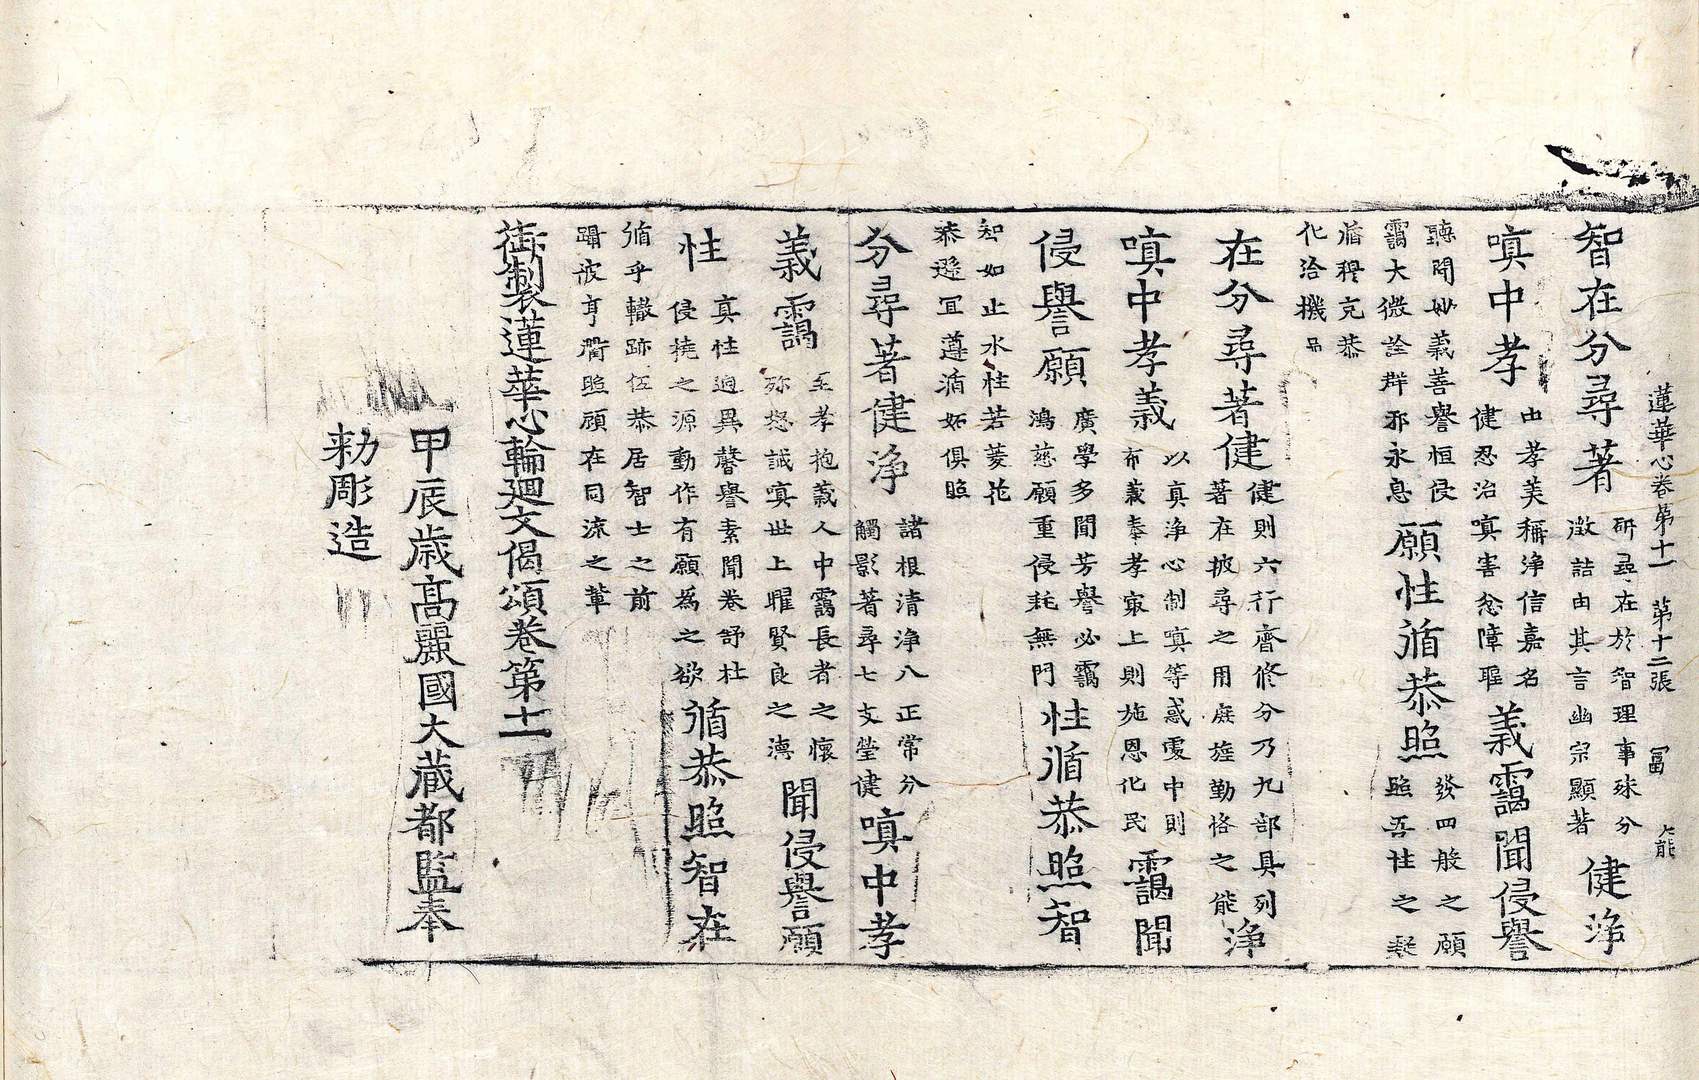 蓮華心卷第十一 第十二張 冨 大能
智在分尋著
研尋在於智理事殊分
澂詰由其言幽宗顯著
健淨
嗔中孝
由孝美稱淨信嘉名
健忍治嗔害忿障聖
義靄聞侵譽
聽聞妙義善譽恒侵
靄大微詮群邪永息
願性循恭照
發四般之願
照吾性之
循穆克恭
化洽機品
在分尋著健
健則六行齊修分乃九部具列
著在披尋之用庭旌勤恪之能
淨
嗔中孝義
以真淨心制嗔等惑處中則
布義奉孝家上則施恩化民
靄聞
侵譽願
廣學多聞芳譽必靄
鴻慈願重侵耗無門
性循恭照智
智如止水性若菱花
恭遜宜遵循妬俱照
分尋著健淨
諸根清淨八正常分
觸影著尋七支瑩健
嗔中孝
義靄
至孝抱義人中靄長者之懷
弥怒誡嗔世上曜賢良之
聞侵譽願
性
真性逈異馨譽素聞卷舒杜
侵撓之源動作有願為之欲
循恭照智在
循乎轍跡伍恭居智士之前
躡彼亨衢照願在同流之輩
御製蓮華心輪廻文偈頌卷第十一
甲辰歲高麗國大藏都監奉
勑彫造